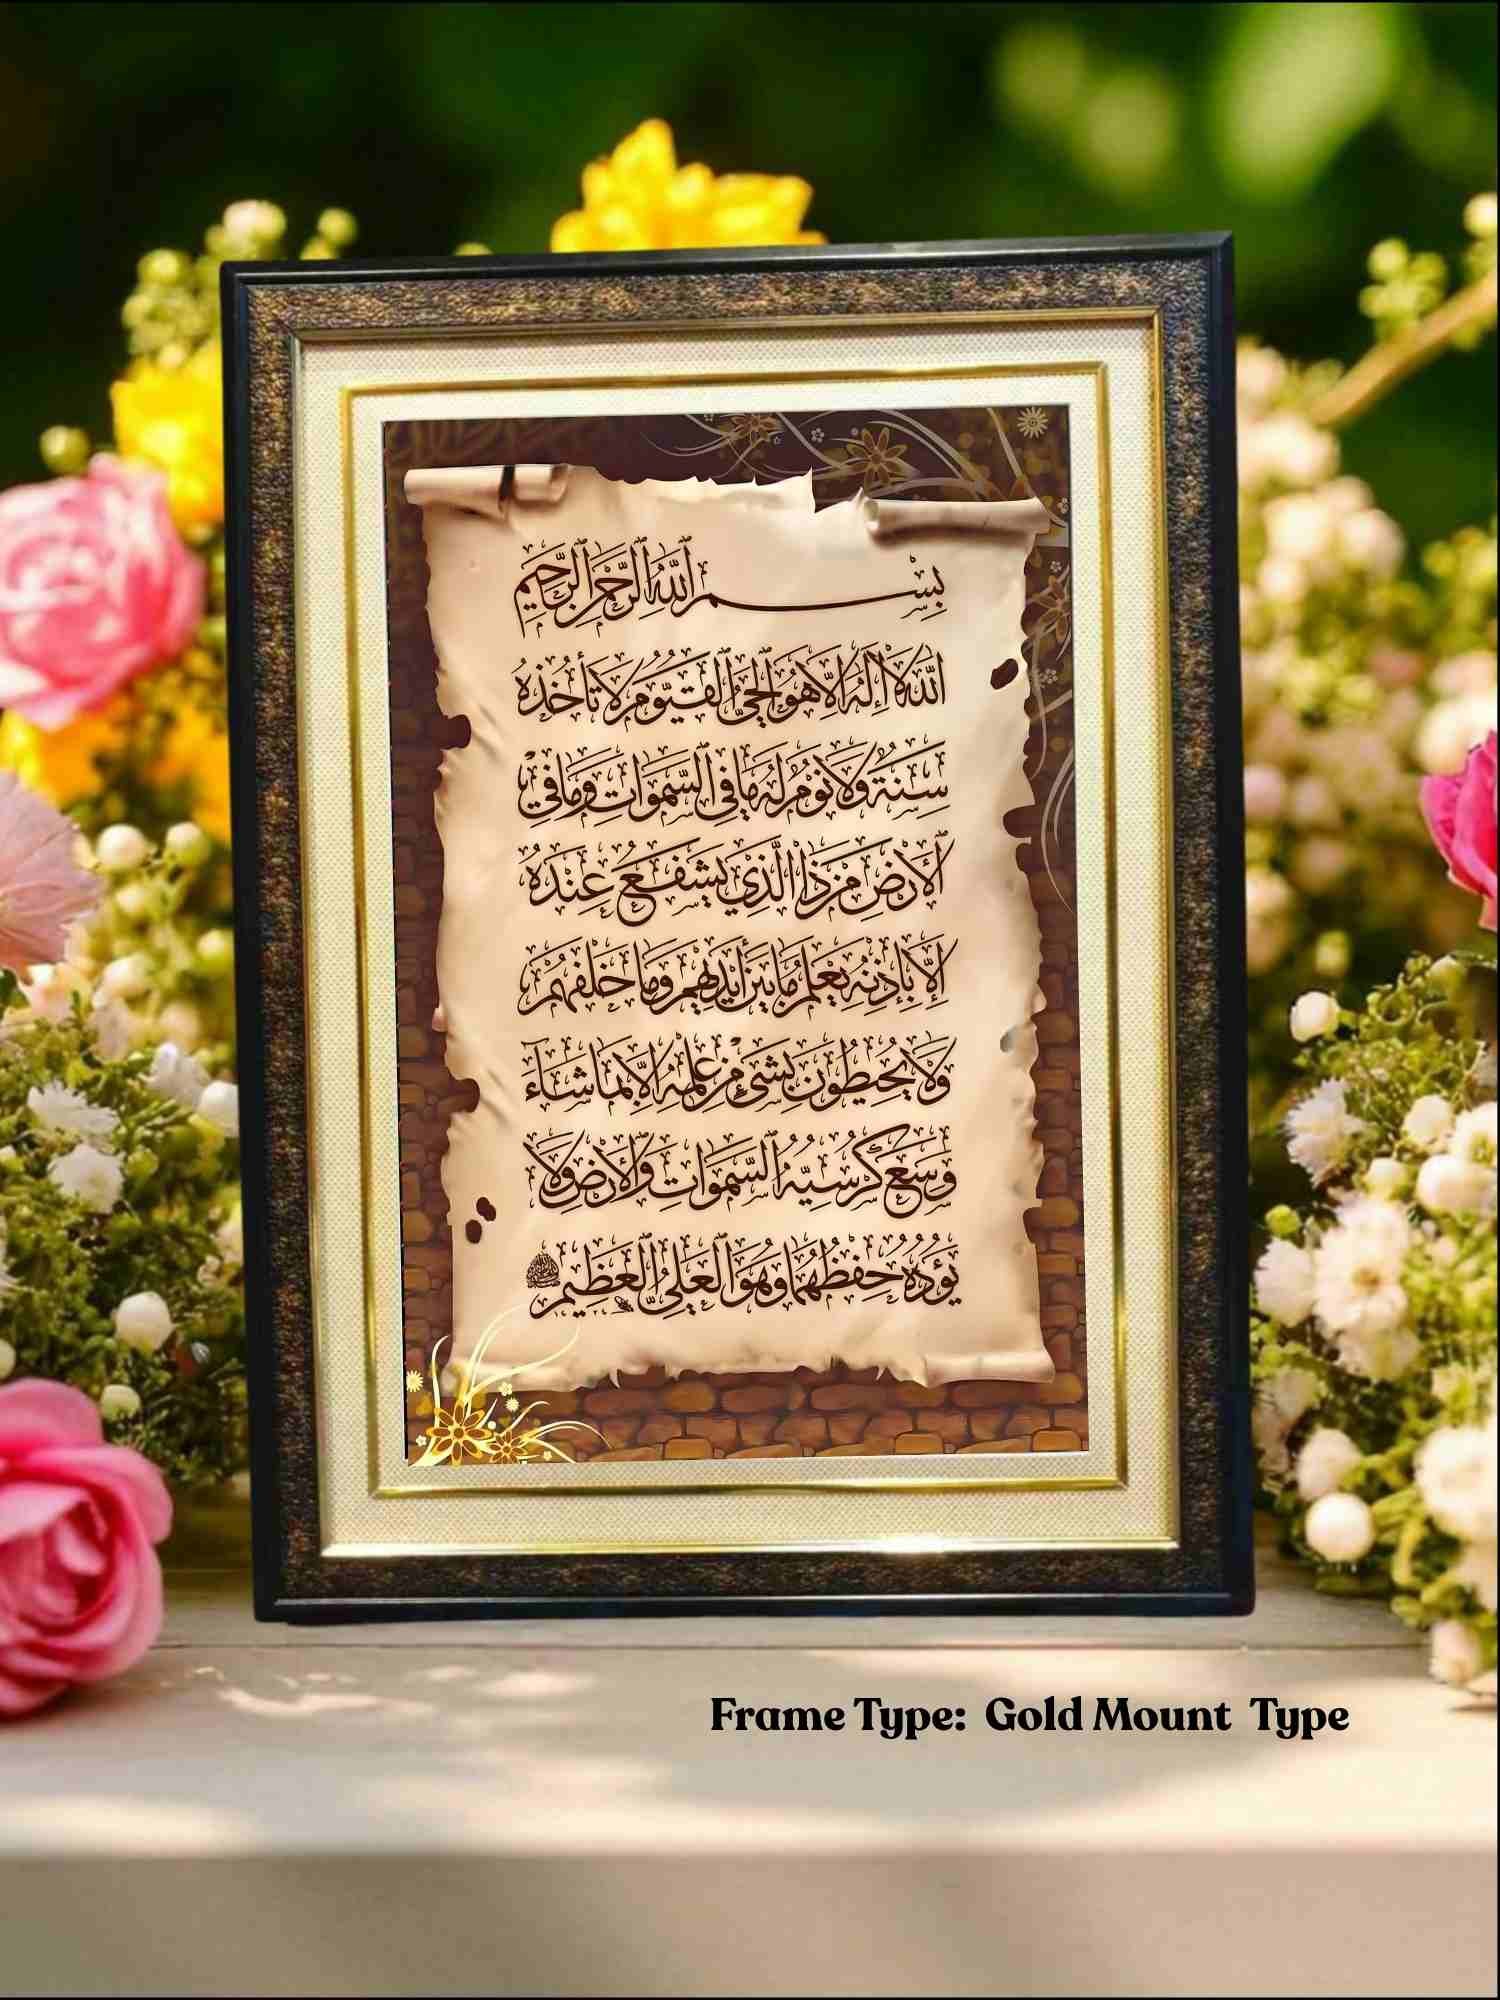 بِسْمِ ٱللَّهِ ٱلرَّحْمَٰنِ ٱلرَّحِيمِ
ٱللَّهُ لَا إِلَٰهَ إِلَّا هُوَ ٱلْحَيُّ ٱلْقَيُّومُ لَا تَأْخُذُهُ
سِنَةٌ وَلَا نَوْمٌ لَهُ مَا فِي ٱلسَّمَوَاتِ وَمَا فِي
ٱلْأَرْضِ مَنْ ذَا ٱلَّذِي يَشْفَعُ عِنْدَهُ
إِلَّا بِإِذْنِهِ يَعْلَمُ مَا بَيْنَ أَيْدِيهِمْ وَمَا خَلْفَهُمْ
وَلَا يُحِيطُونَ بِشَيْءٍ مِنْ عِلْمِهِ إِلَّا بِمَا شَاءَ
وَسِعَ كُرْسِيُّهُ ٱلسَّمَوَاتِ وَٱلْأَرْضَ وَلَا
يَؤُدُهُ حِفْظُهُمَا وَهُوَ ٱلْعَلِيُّ ٱلْعَظِيمُ
Frame Type: Gold Mount Type